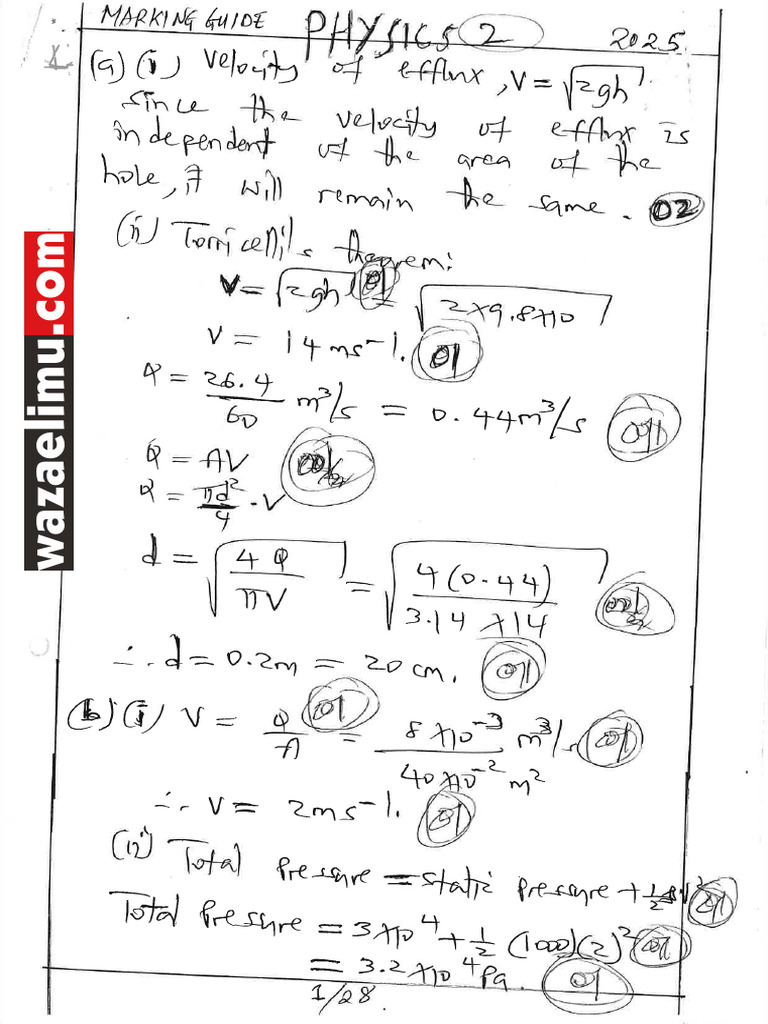 MARKING GUIDE PHYSICS 2 2025
1.
(a) (i) Velocity of efflux, V = √2gh
Since the velocity of efflux is
independent of the area of the
hole, it will remain the same. 02
(ii) Torricelli's theorem:
V = √2gh 01 = √2×9.8×10
V = 14ms-1. 01
Q = 26.4/60 m³/s = 0.44m³/s 001
Q = AV 00½
Q = πd²/4 · V
d = √4Q/πV = √4(0.44)/3.14 ×14
∴ d = 0.2m = 20 cm. 01
(b) (i) V = Q/A 01 = 8×10⁻³ m³/s/40×10⁻² m² 01
∴ V = 2ms-1. 01
(ii) Total pressure = static pressure + ½ρV² 01
Total pressure = 3×10⁴ + ½ (1000)(2)² 01
= 3.2×10⁴ Pa. 01
1/28.
wazaelimu.com